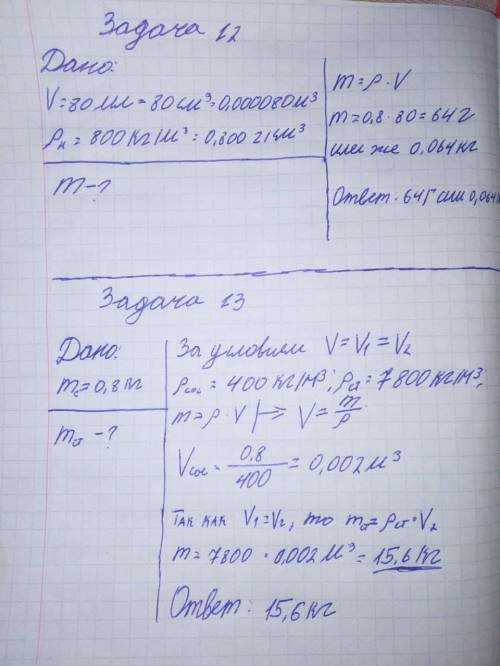 Задача 12
Дано:
V=80мл=80см³=0,000080м³
ρк=800кг/м³=0,800г/см³
m-?
m=ρ·V
m=0,8·80=64г
или же 0,064кг
Ответ: 64г или 0,064
Задача 13
Дано:
mс=0,8кг
mст-?
За условием V=V₁=V₂
ρсос=400кг/м³; ρст=7800кг/м³;
m=ρ·V |=> V=m/ρ
Vсос=0,8/400=0,002м³
Так как V₁=V₂, то mст=ρст·V₂
m=7800·0,002м³=15,6кг
Ответ: 15,6кг